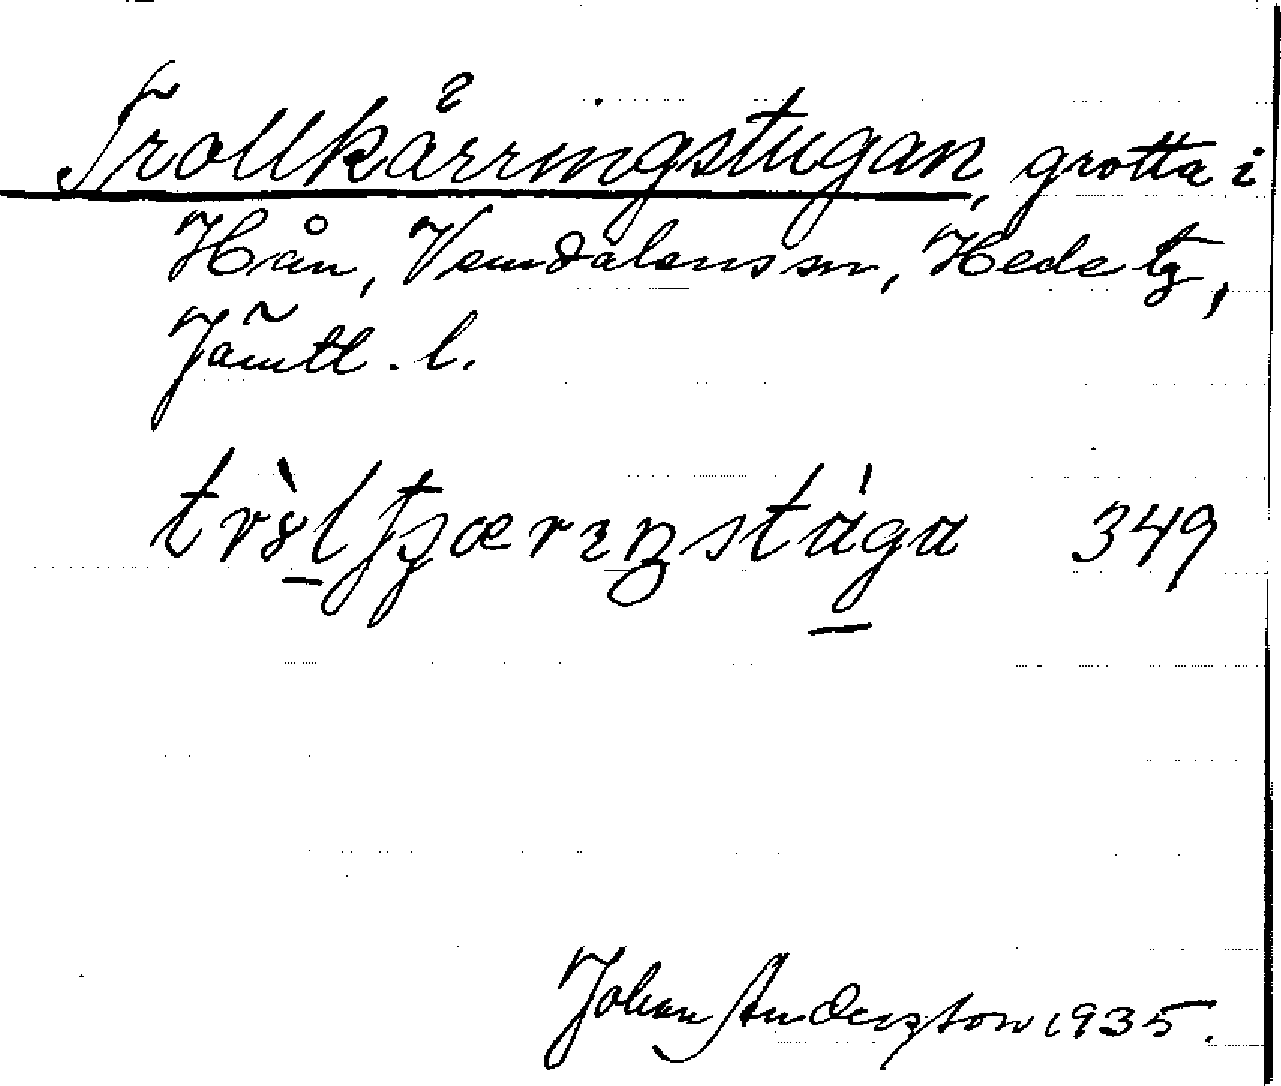 Trollkäringstugan, grotta i
Hån, Vemdalens sn, Hede tg,
Jämtl. l.
349
Johan Anderzton 1935.